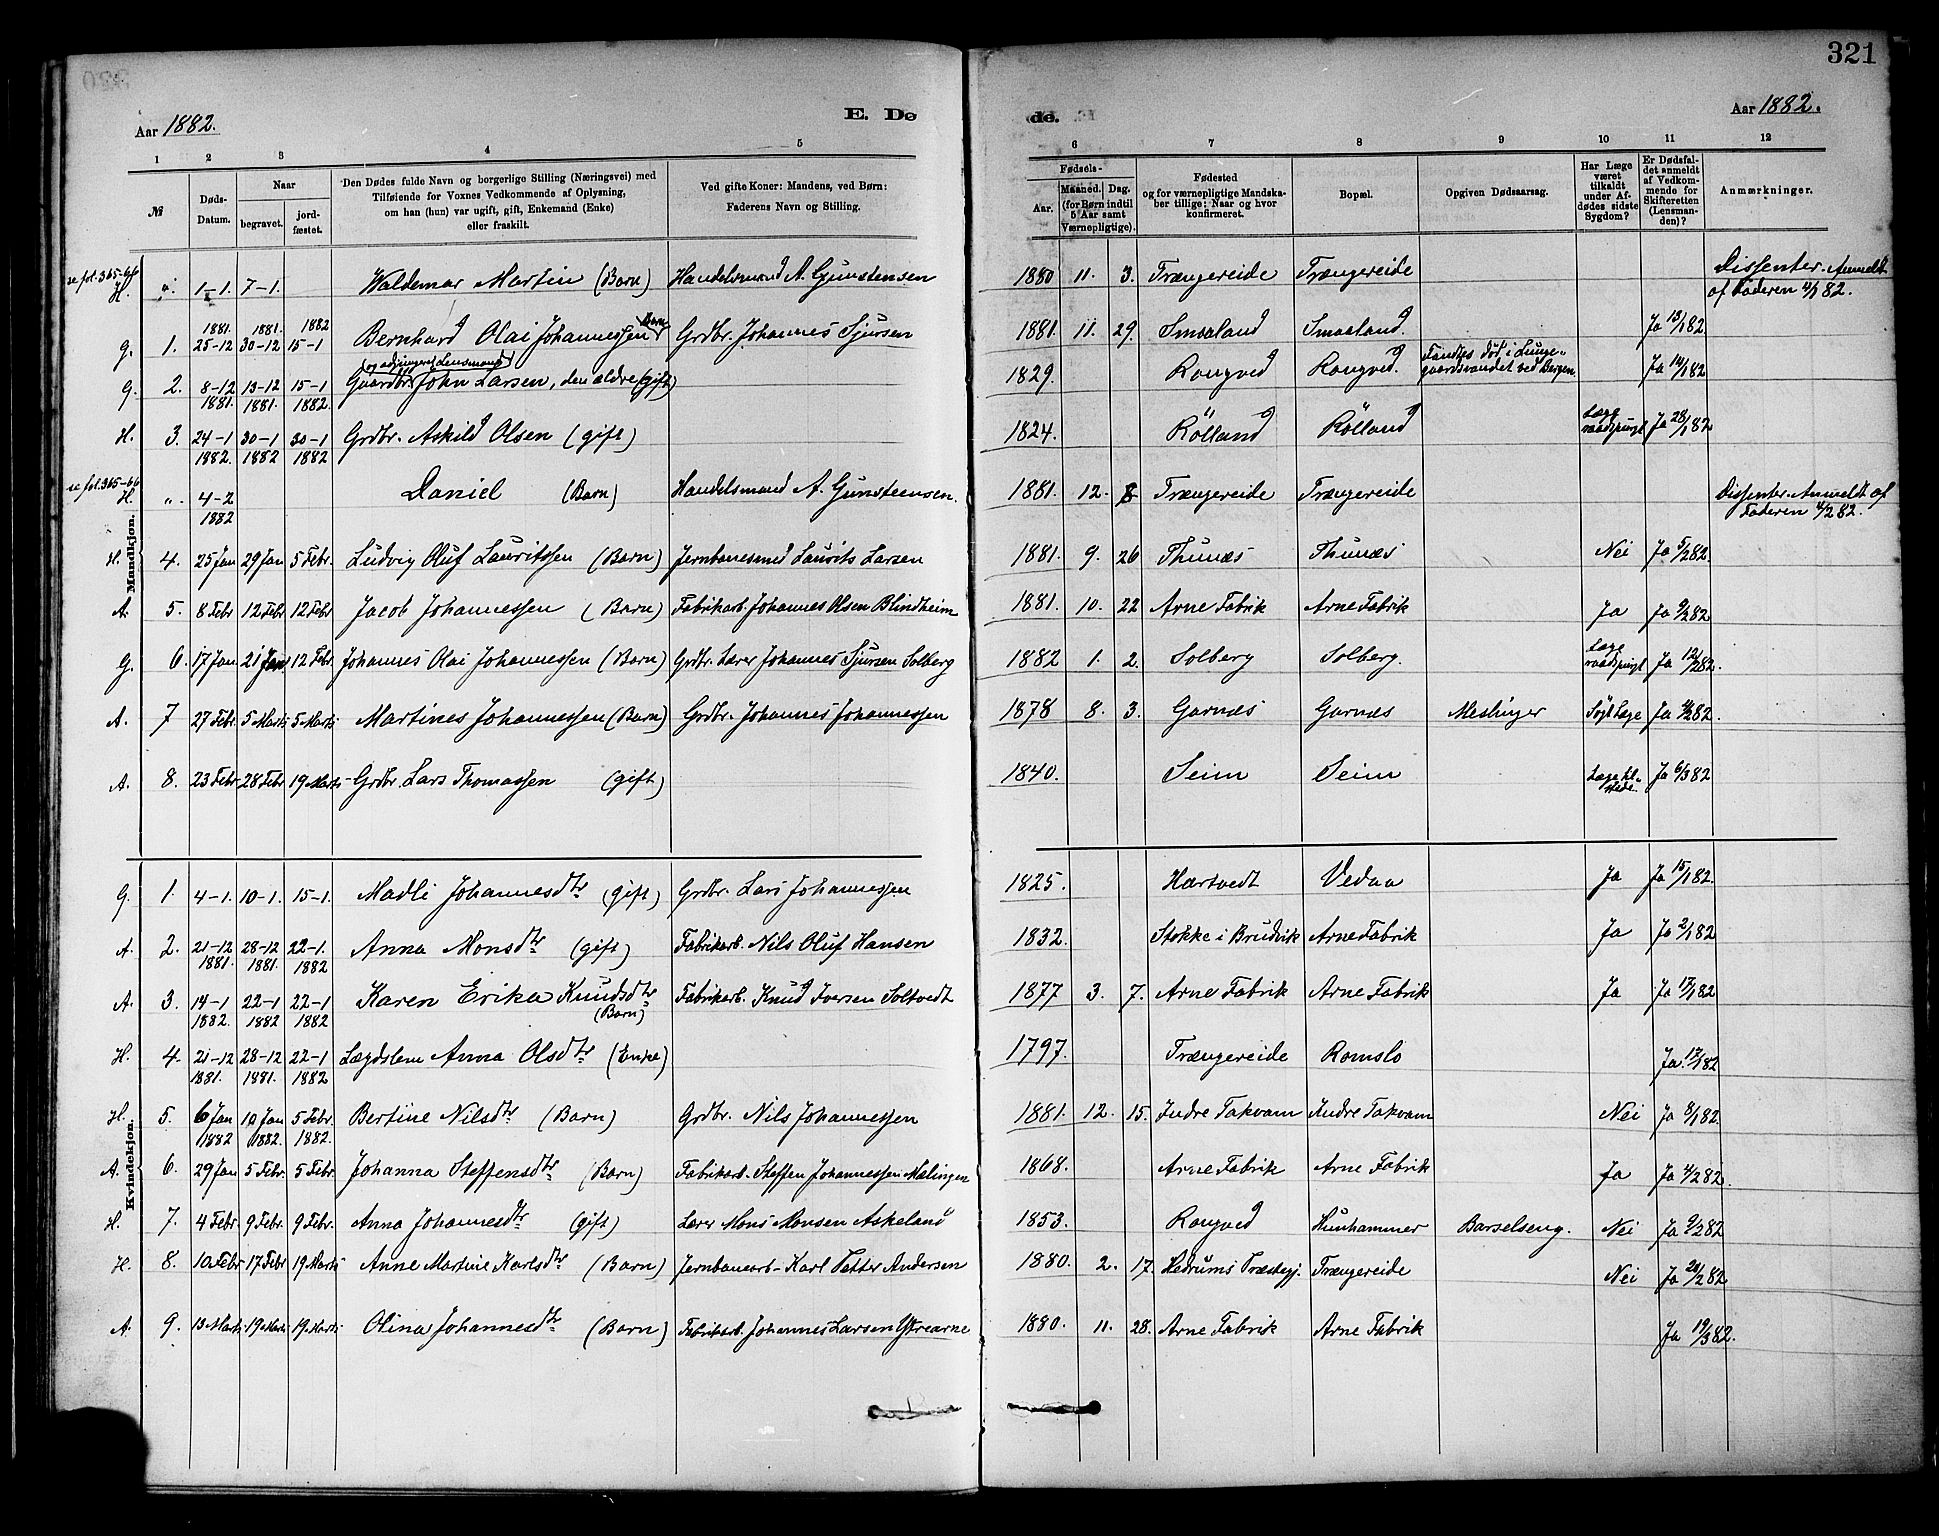 321
Aar 1882. E. Dø
de. Aar 1882.
1 2 3 4 5
6 7 8 9 10 11 12
№
Døds-Datum.
Naar
begravet.
jord-fæstet.
Den Dødes fulde Navn og borgerlige Stilling (Næringsvei) med
Tilføiende for Voxnes Vedkommende af Oplysning,
om han (hun) var ugift, gift, Enkemand (Enke)
eller fraskilt.
Ved gifte Koner: Mandens, ved Børn:
Faderens Navn og Stilling.
Fødsels-
Aar.
Maaned. Dag.
(for Børn indtil
5 Aar samt
Værnepligtige).
Fødested
og for værnepligtige Mandska-
ber tillige: Naar og hvor
konfirmeret.
Bopæl.
Opgiven Dødsaarsag.
Har Læge
været
tilkaldt
under Af-
dødes sidste
Sygdom?
Er Dødsfal-
det anmeldt
af Vedkom-
mende for
Skifteretten
(Lensman-
den)?
Anmærkninger.
Mandkjøn.
se fol. 365-66 H. ". 1-1. 7-1. Waldemar Martin (Barn) Handelsmand A. Gunstensen 1880 11. 3. Trængereide Trængereide Dissenter. Anmeldt af Faderen 4/1 82.
G. 1. 1881 25-12 1881. 30-12 1882 15-1 Bernhard Olai Johannessen (Barn) Grdbr. Johannes Sjursen 1881 11. 29. Smaaland Smaaland. Ja 15/1 82.
G. 2. 8-12 1881. 13-12 1881. 15-1 1882. Gaardbr. og adjungeret Lensmand John Larsen, den ældre (gift) 1829. Rongved Rongved. Fandtes død i Lunge-gaardsvandet ved Bergen. Ja 14/1 82
H. 3. 24-1 1882. 30-1 1882 30-1 1882 Grdbr. Askild Olsen (gift) 1824. Rölland Rölland Læge raadspurgt Ja 28/1 82
se fol. 365-66 H. ". 4-2 1882 Daniel (Barn) Handelsmand A. Gunsteensen. 1881. 12. 8 Trængereide Trængereide Dissenter. Anmeldt af Faderen 4/2 82.
H. 4. 25 Jan 29 Jan 5 Febr. Ludvig Oluf Lauritssen (Barn) Jernbanesmed Laurits Larsen 1881. 9. 26 Thunæs Thunæs Nei Ja 5/2 82.
A. 5. 8 Febr 12 Febr 12 Febr Jacob Johannessen (Barn) Fabrikarb. Johannes Olsen Blindheim 1881. 10. 22 Arne Fabrik Arne Fabrik Ja Ja 9/2 82
G. 6. 17 Jan 21 Jan. 12 Febr. Johannes Olai Johannessen (Barn) Grdbr. Lærer Johannes Sjursen Solberg 1882 1. 2. Solberg Solberg. Læge raadspurgt Ja 12/2 82.
A. 7 27 Febr. 5 Marts 5 Marts Martines Johannessen (Barn) Grdbr. Johannes Johannessen 1878 8. 3. Garnæs Garnæs Meslinger Søgt Læge Ja 82.
A. 8. 23 Febr 28 Febr 19 Marts Grdbr. Lars Thomassen (gift) 1840. Seim Seim Læge til-stede. Ja 6/3 82
Kvindekjøn.
G. 1. 4-1. 10-1. 15-1. Madli Johannesdtr (gift) Grdbr. Lars Johannessen 1825. Hartvedt Vedaa Ja Ja 15/1 82.
A. 2. 21-12 1881. 28-12 1881. 22-1. 1882 Anna Monsdtr (gift) Fabrikarb. Nils Oluf Hansen 1832. Stokke i Brudvik Arne Fabrik Ja Ja 2/1 82
A. 3. 14-1 1882. 22-1 1882 22-1 1882 Karen Erika Knudsdtr (Barn) Fabrikarb. Knud Iversen Soltvedt 1877 3. 7. Arne Fabrik Arne Fabrik Ja Ja 17/1 82
H. 4. 21-12 1881. 28-12 1881. 22-1 1882 Lægdslem Anna Olsdtr (Enke) 1797. Trængereide Romslo Ja 17/1 82
H. 5. 6 Jan 1882 10 Jan 1882. 5 Febr. 1882. Bertine Nilsdtr (Barn) Grdbr. Nils Johannessen 1881. 12. 15. Indre Takvam Indre Takvam Nei Ja 8/1 82.
A. 6. 29 Jan 5 Febr. 5 Febr. Johanna Steffensdtr (Barn) Fabrikarb. Steffen Johannessen Mælingen 1868. Arne Fabrik Arne Fabrik Ja Ja 4/2 82.
H. 7. 4 Febr. 9 Febr. 9 Febr. Anna Johannesdtr (gift) Lærer Mons Monsen Askeland 1853. Rongved Hunhammer Barselseng. Nei Ja 9/2 82
H. 8. 10 Febr 17 Febr 19 Marts Anne Martine Karlsdtr (Barn) Jernbanearb. Karl Petter Andersen 1880. 2. 17. Hedrums Præstegj. Trængereide Nei Ja 20/2 82
A. 9. 13 Marts 19 Marts 19 Marts Olina Johannesdtr (Barn) Fabrikarb. Johannes Larsen Ytrearne 1880. 11. 28. Arne Fabrik Arne Fabrik Ja 19/3 82.